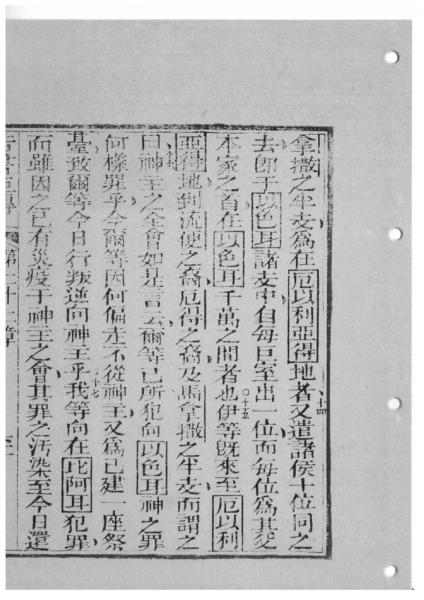 拿撒之半支爲在厄以利亞得地者又遣諸侯十位同之
十四
去卽于以色耳諸支中自每巨室出一位而每位爲其父
本家之首在以色耳千萬之間者也伊等旣來至厄以利
十五
亞得地到流便之裔厄得之裔及馬拿撒之半支而謂之
曰神主之全會如是言云爾等已所犯向以色耳神之罪
十六
何樣罪乎今爾等因何偏走不從神主又爲己建一座祭
臺致爾等今日行叛逆向神主乎我等向在庇阿耳犯罪
十七
而雖因之已有災疫于神主之會其罪之汚染至今日還
第二十二章